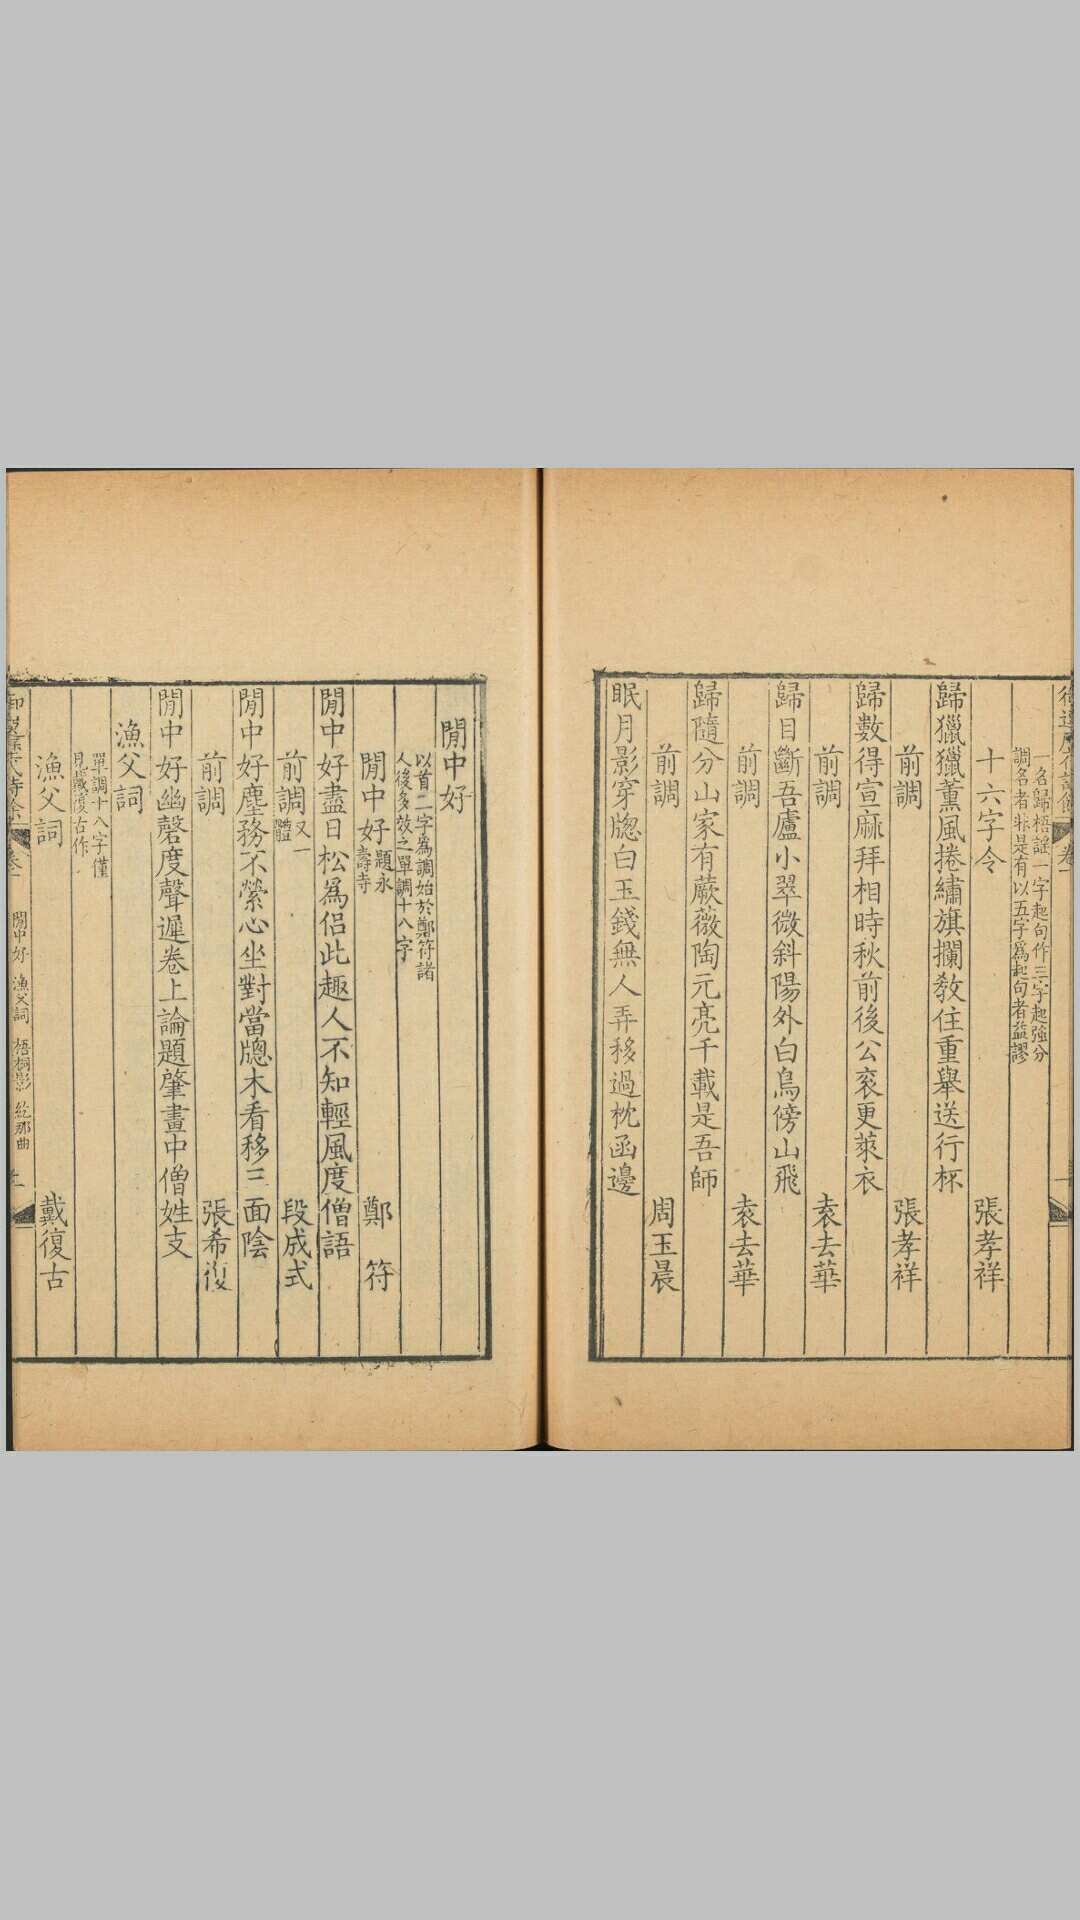 一名歸梧謡一字起句作三字起強分
調名者非是有以五字爲起句者益謬
十六字令 張孝祥
歸獵獵薰風捲繡旗攔教住重舉送行杯
前調 張孝祥
歸數得宣麻拜相時秋前後公衮更萊衣
前調 袁去華
歸目斷吾廬小翠微斜陽外白鳥傍山飛
前調 袁去華
歸隨分山家有蕨薇陶元亮千載是吾師
前調 周玉晨
眠月影穿牕白玉錢無人弄移過枕函邊
閒中好
以首二字爲調始於鄭符諸
人後多效之單調十八字
閒中好 題永壽寺 鄭符
閒中好盡日松爲侣此趣人不知輕風度僧語
前調 又一體 段成式
閒中好塵務不縈心坐對當牕木看移三面陰
前調 張希復
閒中好幽磬度聲遲卷上論題肇畫中僧姓支
漁父詞
單調十八字僅
見戴復古作
漁父詞 戴復古
閒中好 漁父詞 梧桐影 紇那曲